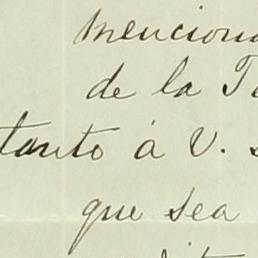 menciona
de la T
tanto á V. S
que sea